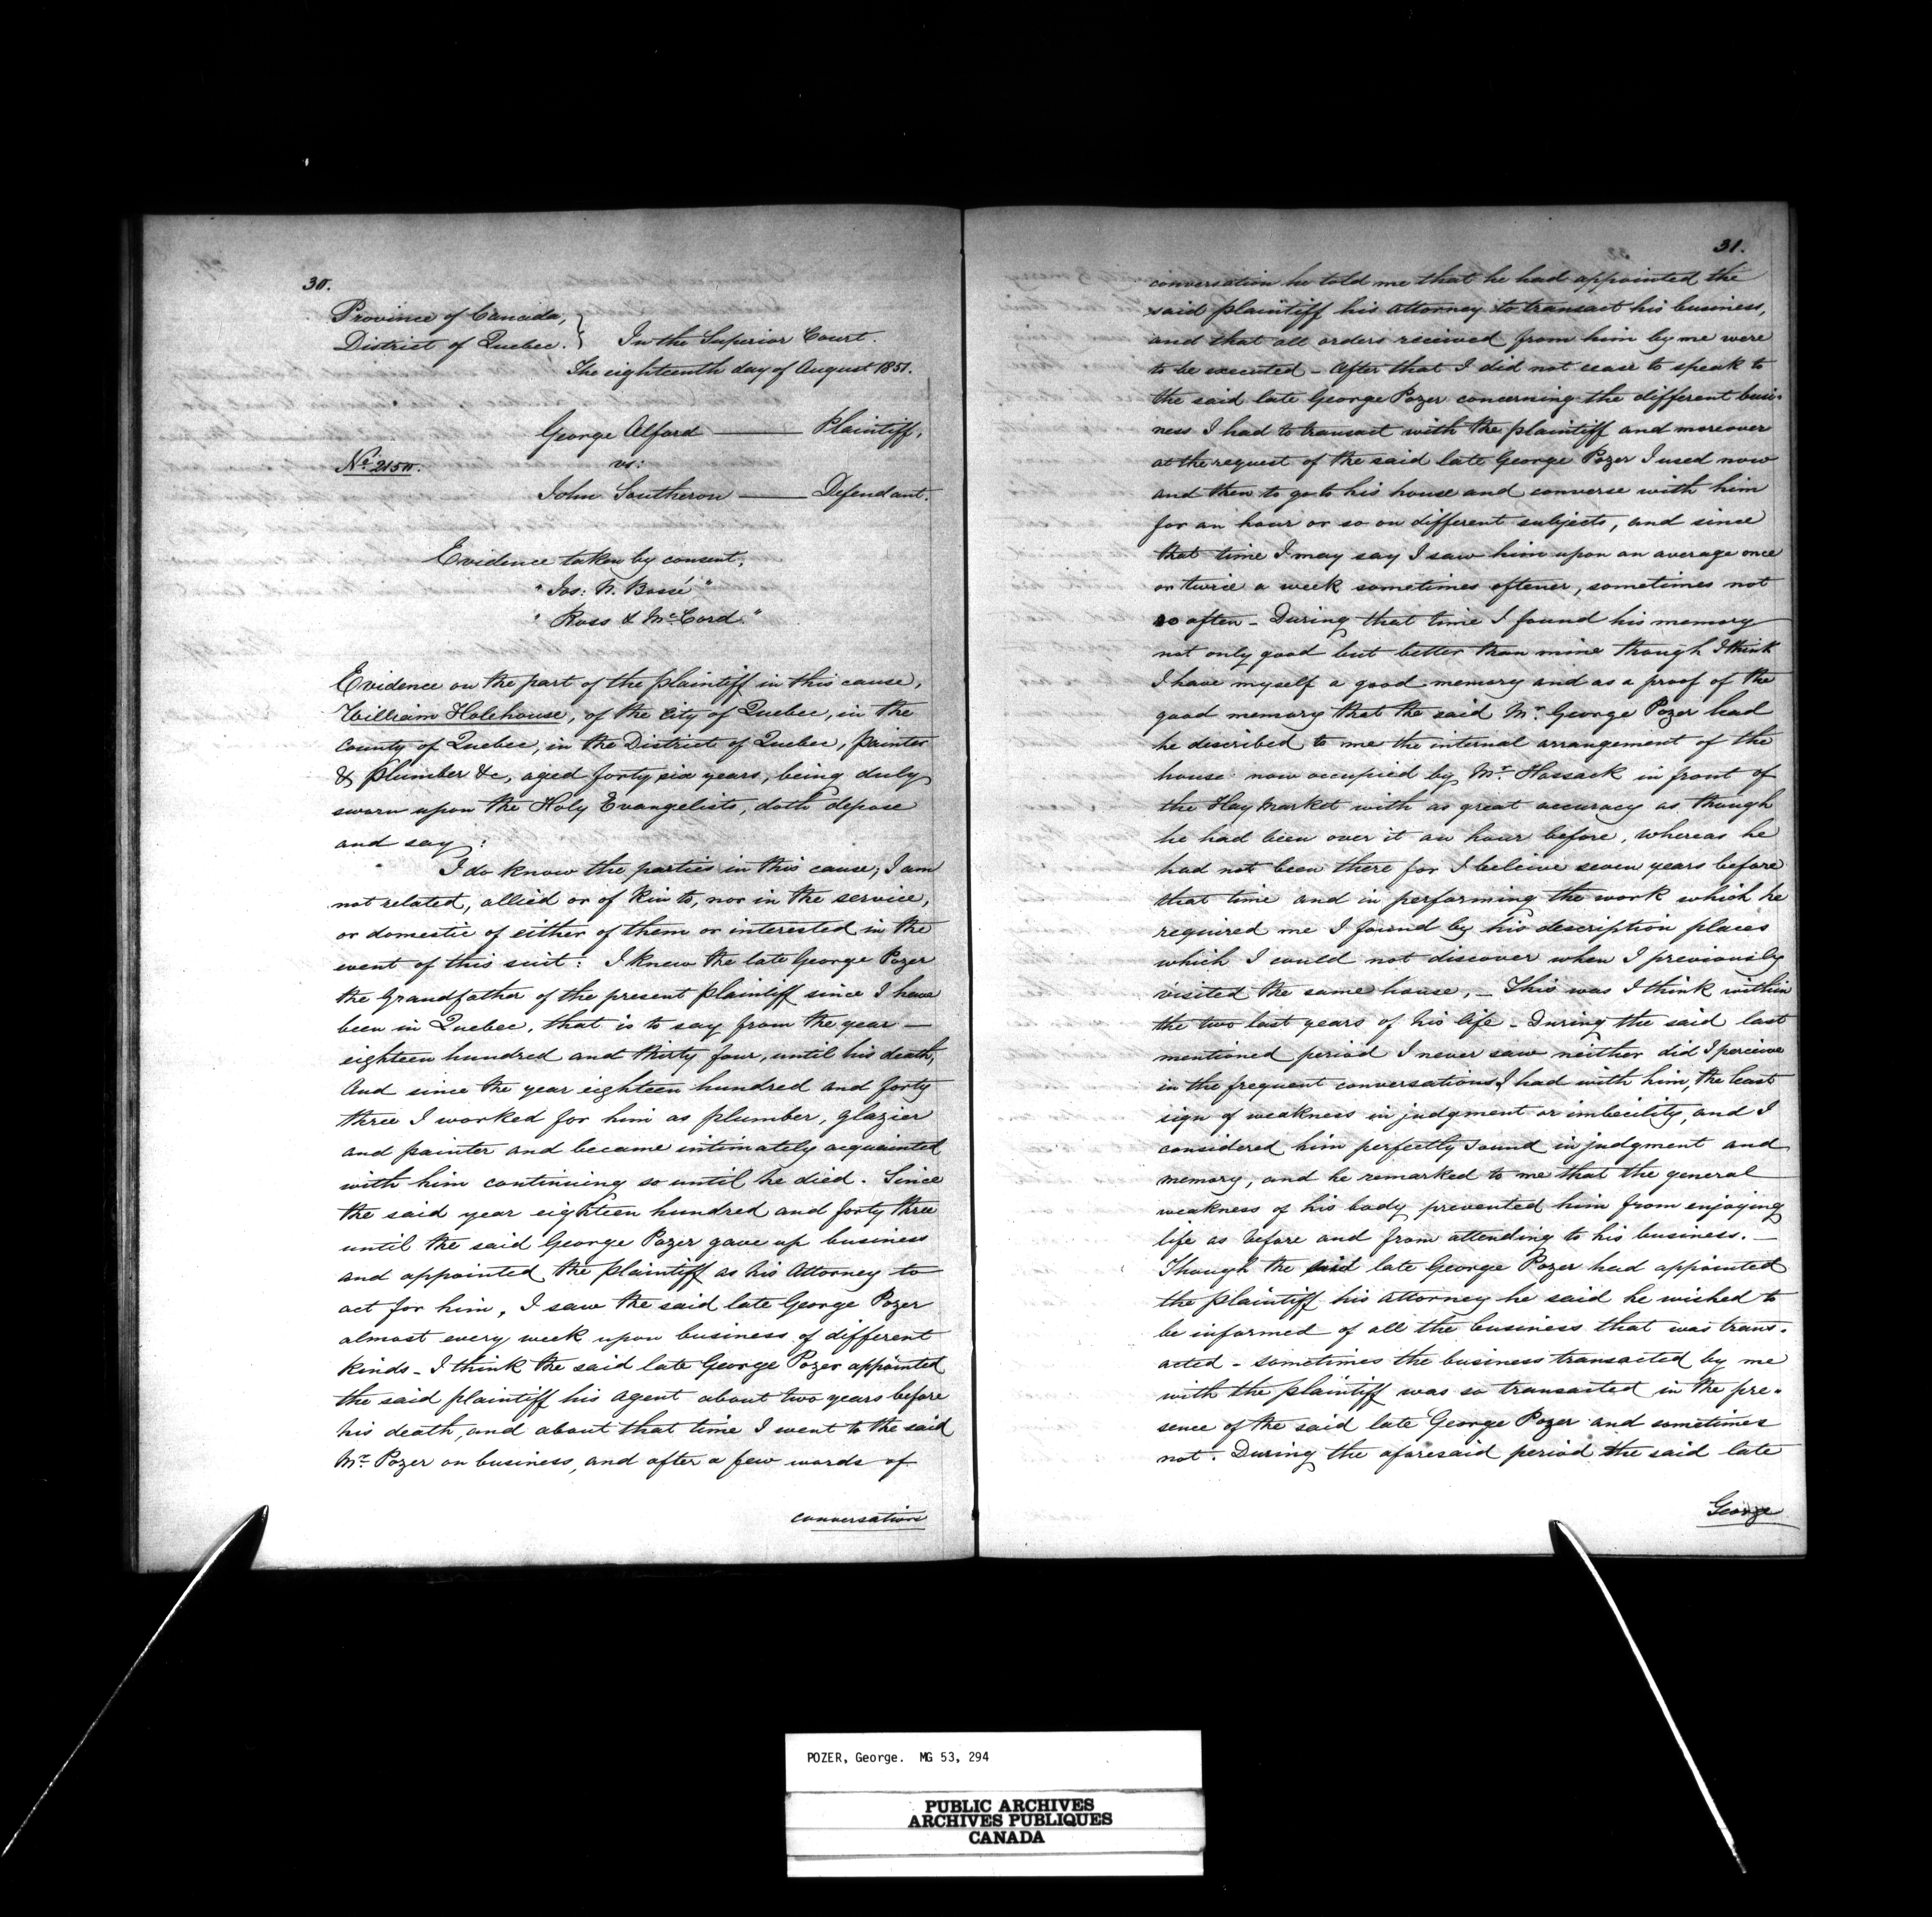 30.
Province of Canada, }
District of Quebec. } In the Superior Court.
The eighteenth day of August 1851.
George Alford ——— Plaintiff,
No. 2150. vs:
John Southeron ——— Defendant.
Evidence taken by consent,
"Jos: N. Bossé"
"Ross & McCord."
Evidence on the part of the plaintiff in this cause,
William Holehouse, of the City of Quebec, in the
County of Quebec, in the District of Quebec, painter
& plumber &c, aged forty six years, being duly
sworn upon the Holy Evangelists, doth depose
and say:
I do know the parties in this cause; I am
not related, allied or of kin to, nor in the service,
or domestic of either of them or interested in the
event of this suit: I knew the late George Pozer
the Grandfather of the present plaintiff since I have
been in Quebec, that is to say from the year —
eighteen hundred and thirty four, until his death,
And since the year eighteen hundred and forty
three I worked for him as plumber, glazier
and painter and became intimately acquainted
with him continuing so until he died. Since
the said year eighteen hundred and forty three
until the said George Pozer gave up business
and appointed the plaintiff as his Attorney to
act for him, I saw the said late George Pozer
almost every week upon business of different
kinds - I think the said late George Pozer appointed
the said plaintiff his agent about two years before
his death, and about that time I went to the said
Mr. Pozer on business, and after a few words of
conversation
31.
conversation he told me that he had appointed the
said plaintiff his attorney to transact his business,
and that all orders received from him by me were
to be executed - After that I did not cease to speak to
the said late George Pozer concerning the different busi-
ness I had to transact with the plaintiff and moreover
at the request of the said late George Pozer I used now
and then to go to his house and converse with him
for an hour or so on different subjects, and since
that time I may say I saw him upon an average once
or twice a week sometimes oftener, sometimes not
so often - During that time I found his memory
not only good but better than mine though I think
I have myself a good memory and as a proof of the
good memory that the said Mr. George Pozer had
he described to me the internal arrangement of the
house now occupied by Mr. Hossack in front of
the Hay Market with as great accuracy as though
he had been over it an hour before, whereas he
had not been there for I beleive seven years before
that time and in performing the work which he
required me I found by his description places
which I could not discover when I previously
visited the same house, - This was I think within
the two last years of his life - During the said last
mentioned period I never saw neither did I perceive
in the frequent conversations I had with him, the least
sign of weakness in judgment or imbecility, and I
considered him perfectly sound in judgment and
memory, and he remarked to me that the general
weakness of his body prevented him from enjoying
life as before and from attending to his business. —
Though the said late George Pozer had appointed
the plaintiff his attorney he said he wished to
be informed of all the business that was trans-
acted - sometimes the business transacted by me
with the plaintiff was so transacted in the pre-
sence of the said late George Pozer and sometimes
not. During the aforesaid period the said late
George
POZER, George. MG 53, 294
PUBLIC ARCHIVES
ARCHIVES PUBLIQUES
CANADA